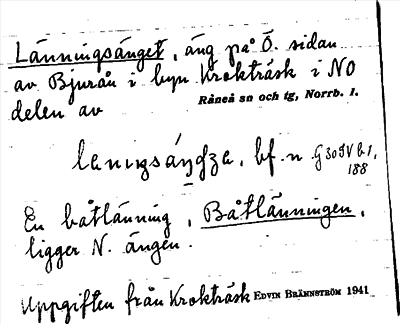 Länningsänget, äng på Ö. sidan
av Bjurån i byn Krokträsk i NO
delen av Råneå sn och tg, Norrb. l.
laningsáŋgza, bf. n G30IV b.1,
188
En båtlänning, Båtlänningen,
ligger N. ängen.
Uppgiften från Krokträsk EDVIN BRÄNNSTRÖM 1941